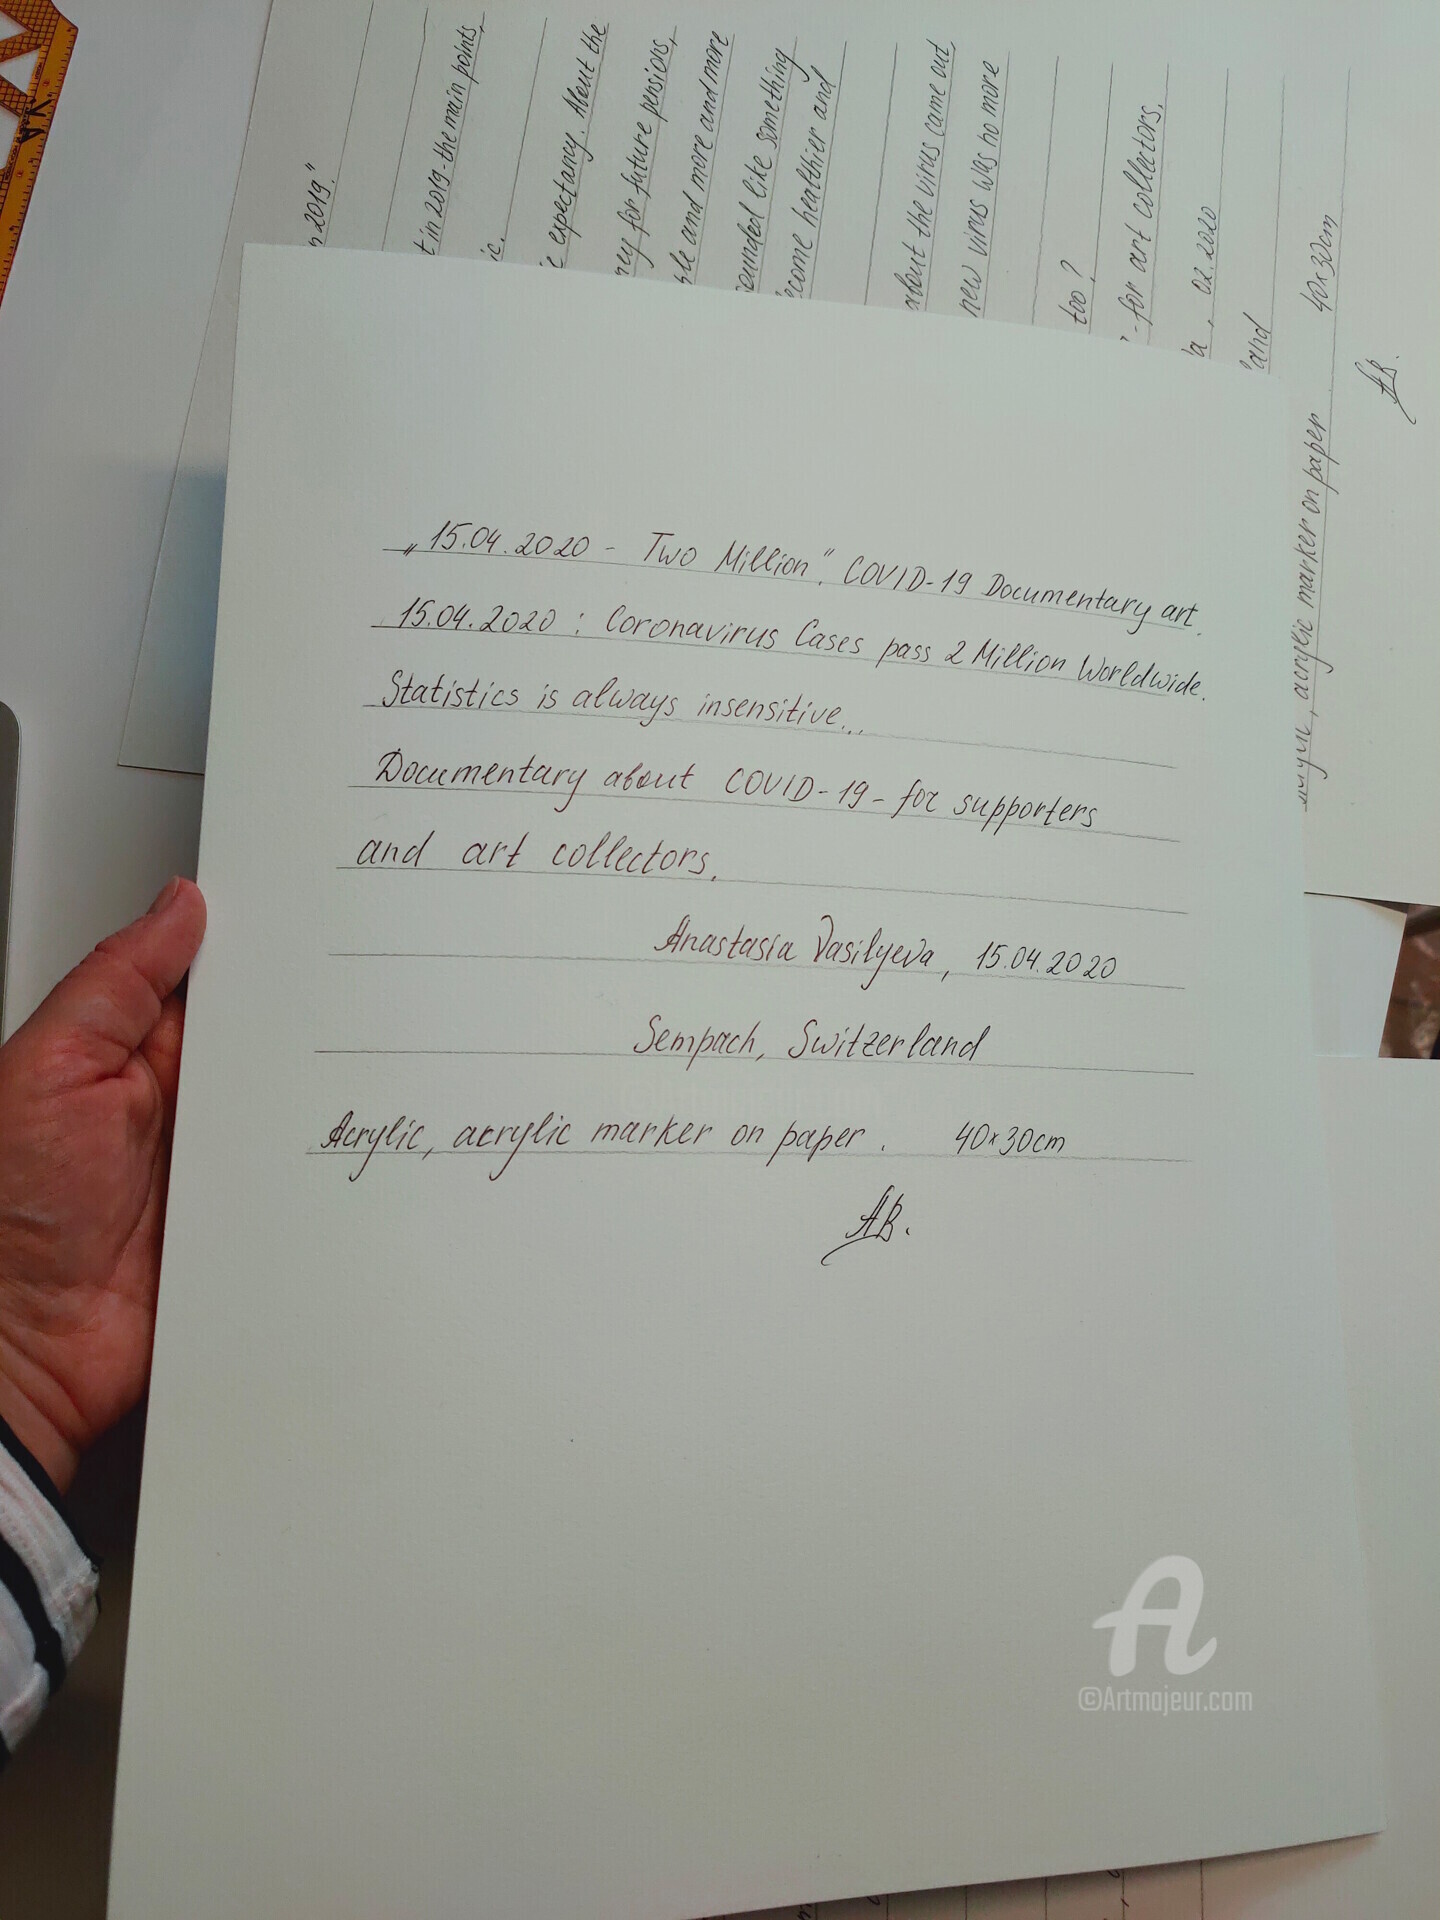 „15.04.2020 - Two Million". COVID-19 Documentary art.
15.04.2020 : Coronavirus Cases pass 2 Million Worldwide.
Statistics is always insensitive...
Documentary about COVID-19 - for supporters
and art collectors.
Anastasia Vasilyeva, 15.04.2020
Sempach, Switzerland
Acrylic, acrylic marker on paper. 40x30cm
AB.
2019."
in 2019 - the main points,
expectancy. About the
for future pensions,
and more and more
like something
healthier and
about the virus came out,
new virus was no more
too?
- for art collectors.
02.2020
acrylic marker on paper 40x30cm
AB.
A
©Artmajeur.com